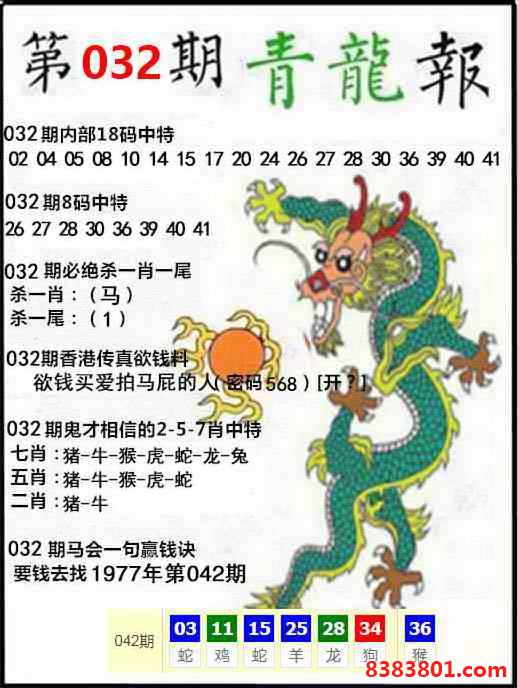 第032期 青龍報
032期内部18码中特
02 04 05 08 10 14 15 17 20 24 26 27 28 30 36 39 40 41
032期8码中特
26 27 28 30 36 39 40 41
032 期必绝杀一肖一尾
杀一肖：（马）
杀一尾：（1）
032期香港传真欲钱料
欲钱买爱拍马屁的人(密码568) [开？]
032期鬼才相信的2-5-7肖中特
七肖：猪-牛-猴-虎-蛇-龙-兔
五肖：猪-牛-猴-虎-蛇
二肖：猪-牛
032 期马会一句赢钱诀
要钱去找1977年第042期
042期 03 11 15 25 28 34 36
蛇 鸡 蛇 羊 龙 狗 猴
8383801.com